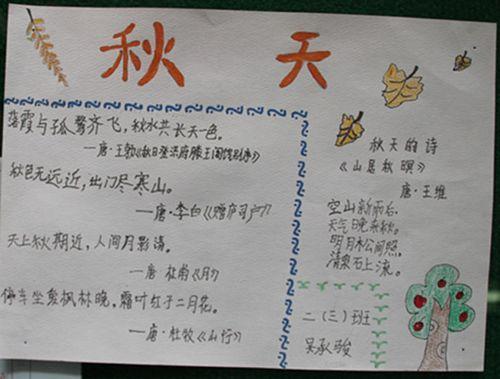 秋 天
落霞与孤鹜齐飞，秋水共长天一色。
—唐·王勃《秋日登洪府滕王阁饯别序》
秋色无远近，出门尽寒山。
—唐·李白《赠庐司户》
天上秋期近，人间月影清。
—唐 杜甫《月》
停车坐爱枫林晚，霜叶红于二月花。
—唐·杜牧《山行》
秋天的诗
《山居秋暝》
唐·王维
空山新雨后，
天气晚来秋。
明月松间照，
清泉石上流。
二（三）班
吴承骏